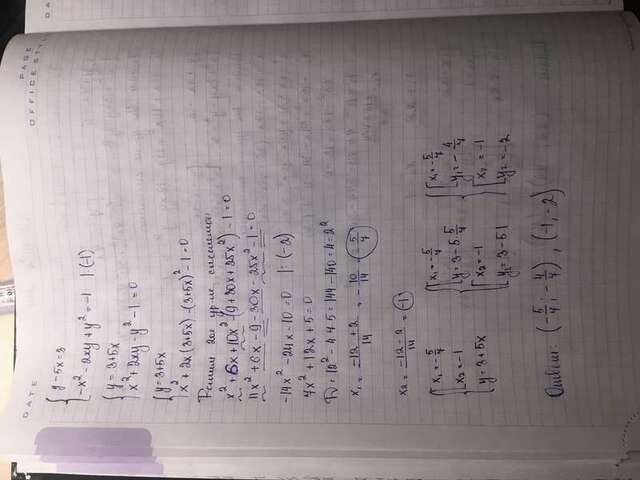 DATE
PAGE
OFFICE STYL
DA
y - 5x = 3
-x² - 2xy + y² = -1 | ·(-1)
y = 3+5x
x² + 2xy - y² - 1 = 0
y = 3+5x
x² + 2x(3+5x) - (3+5x)² - 1 = 0
Решим 2ое ур-ие системы
x² + 6x + 10x² - (9 + 30x + 25x²) - 1 = 0
11x² + 6x - 9 - 30x - 25x² - 1 = 0
-14x² - 24x - 10 = 0 | : (-2)
7x² + 12x + 5 = 0
D = 12² - 4·7·5 = 144 - 140 = 4 = 2²
x₁ = (-12 + 2)/14 = -10/14 = -5/7
x₂ = (-12 - 2)/14 = -1
x₁ = -5/7
x₂ = -1
y = 3+5x
x₁ = -5/7
y = 3 - 5·5/7
x₂ = -1
y₂ = 3 - 5·1
x₁ = -5/7
y₁ = -4/7
x₂ = -1
y₂ = -2
Ответ: (-5/7; -4/7), (-1, -2)